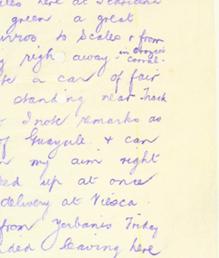 here at
green a great
to Scales & from
righ away - in dozens
corral.
te a car of fair
standing near Track
I note remarks as
of Guayule. & can
my aim right
ed up at once
delivery at Viesca.
from Yerbanis Friday
leaving here